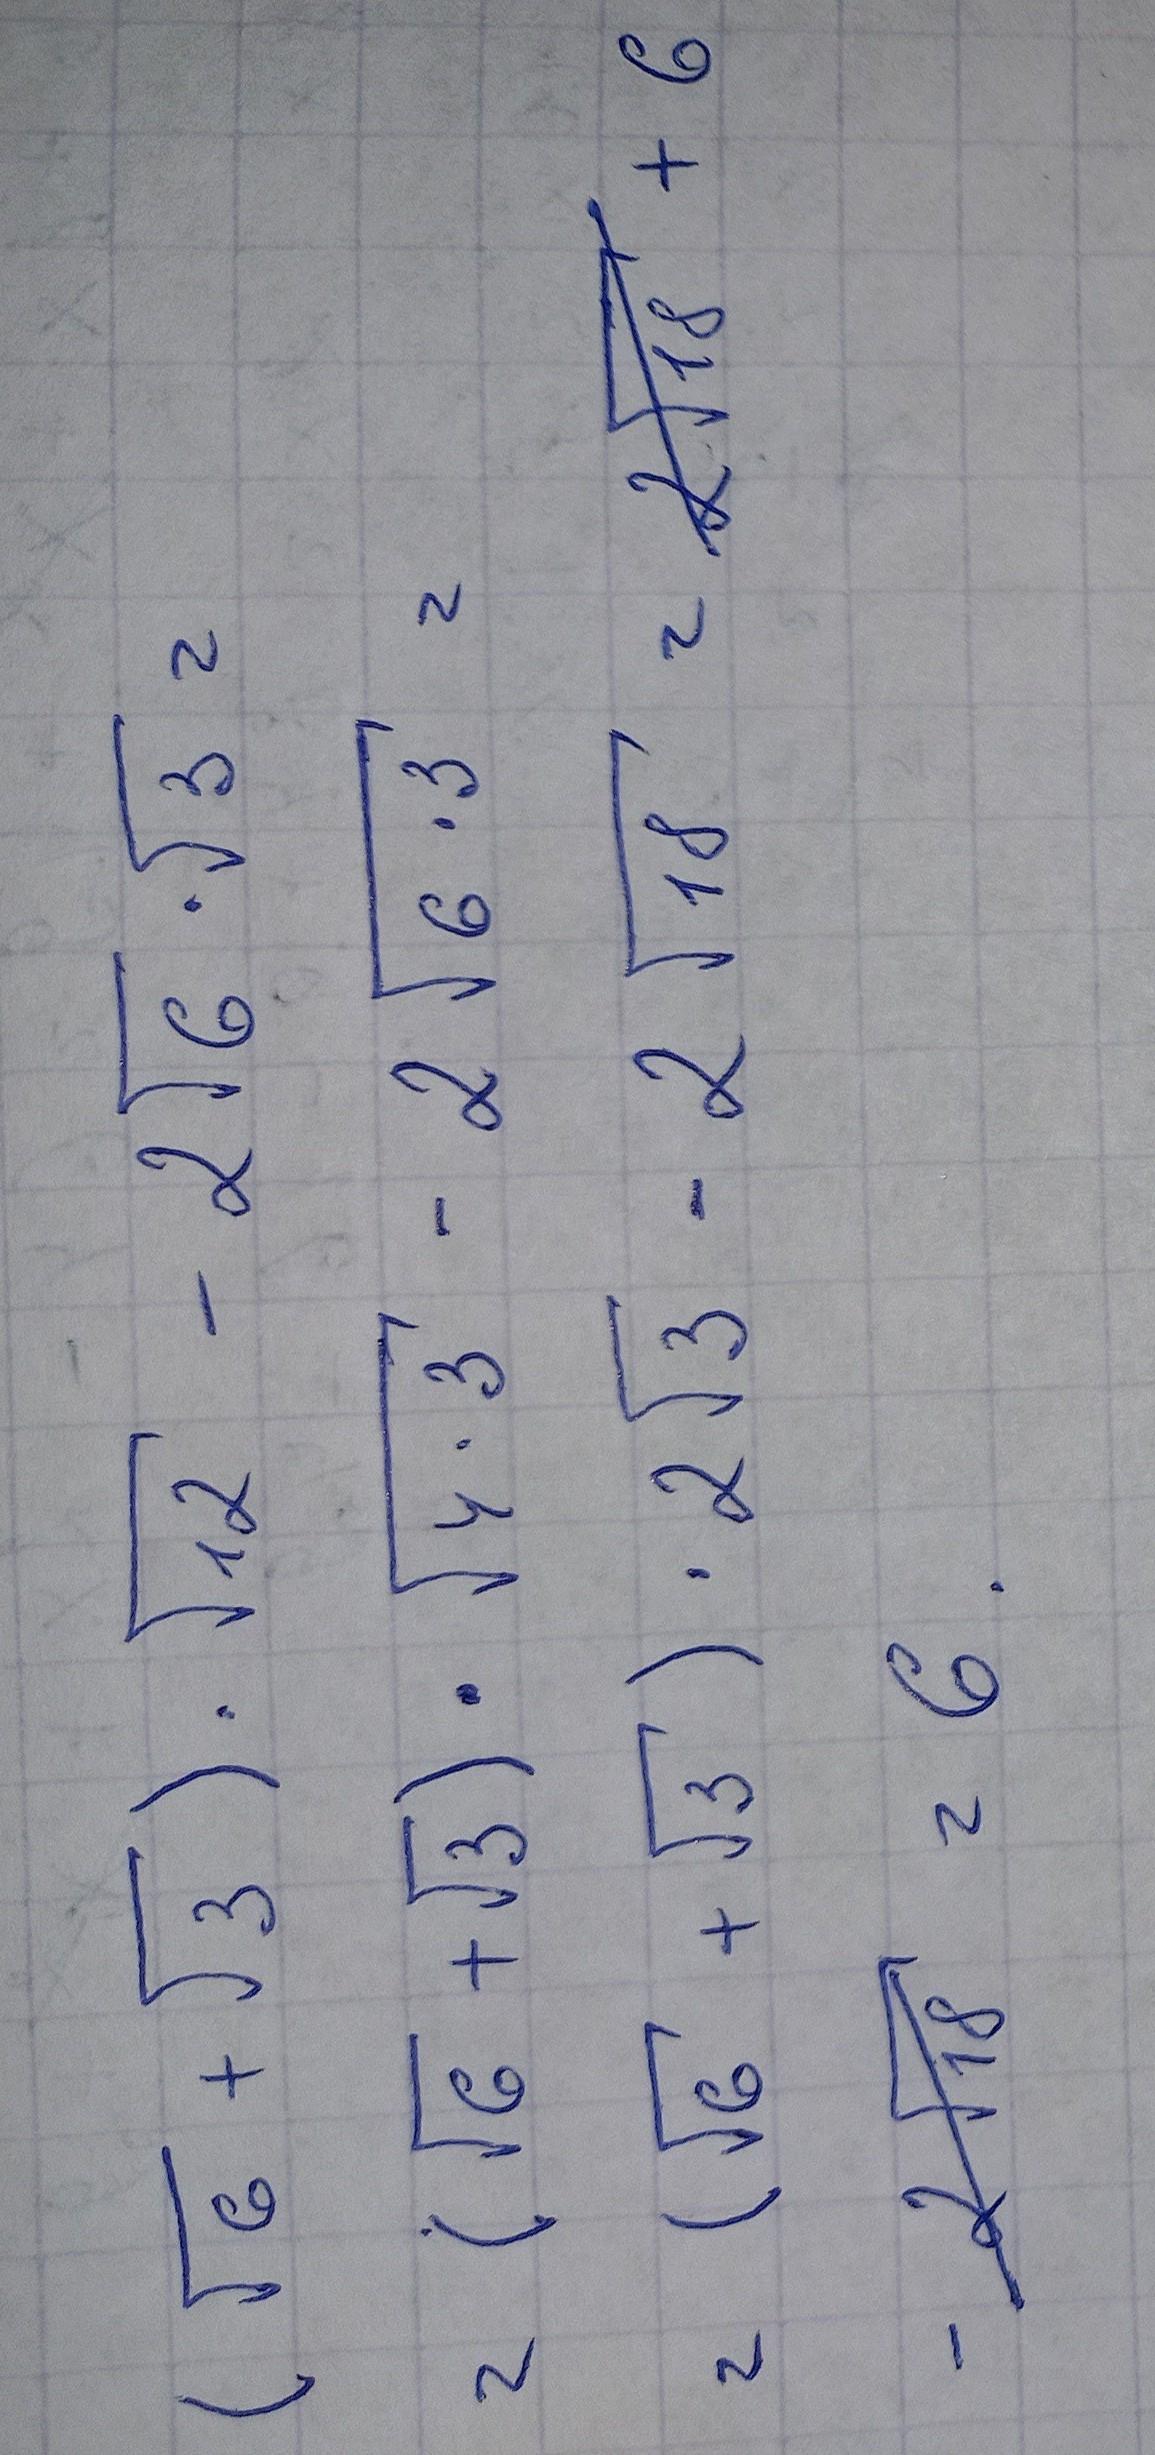 (√6 + √3) · √12 - 2√6 · √3 =
= (√6 + √3) · √4·3 - 2√6·3 =
= (√6 + √3) · 2√3 - 2√18 = 2√18 + 6
- 2√18 = 6.